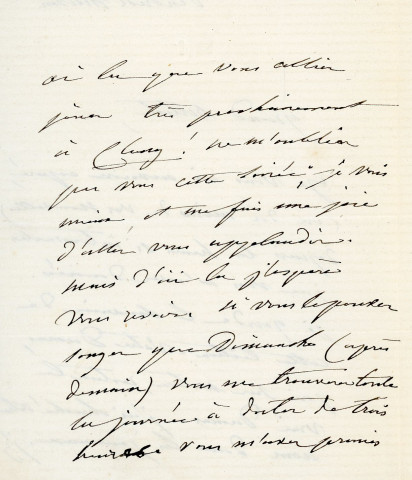 ai lu que vous allier
jouer très prochainement
à Cluny! ne m'oublier
pas vous cette soirée je vais
mieux et me fais une joie
d'aller vous applaudir.
mais d'ici la j'espère
vous revoir. si vous le pouvez
songer que Dimanche (après
demain) vous me trouverer toute
la journée à dater de trois
heures vous m'avez promis